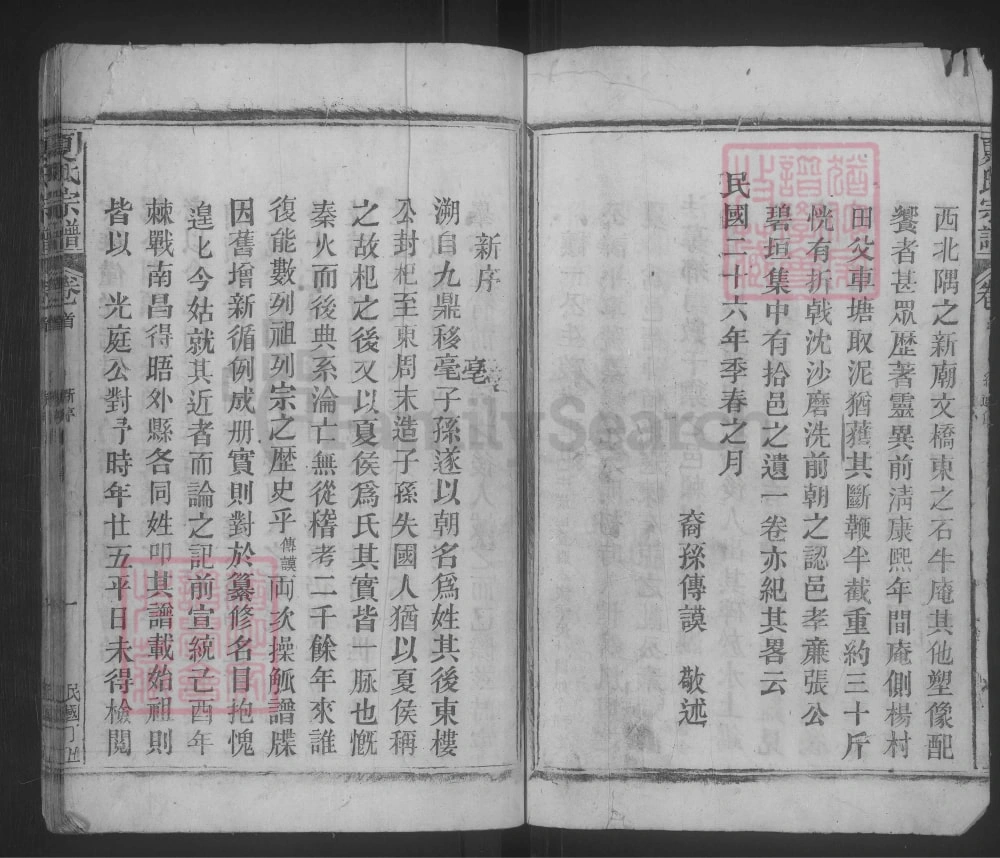 西北隅之新廟文橋東之石牛庵其他塑像配
饗者甚眾歷著靈異前淸康熙年間庵側楊村
田父車塘取泥猶獲其斷鞭半截重約三十斤
恍有折戟沈沙磨洗前朝之認邑孝亷張公
碧垣集中有拾邑之遺一卷亦紀其畧云
民國二十六年季春之月
裔孫傳謨 敬述
夏氏宗譜
卷首
新序
一
民國丁丑
新序
溯自九鼎移亳子孫遂以朝名爲姓其後東樓
亳
公封杞至東周末造子孫失國人猶以夏侯稱
之故杞之後又以夏侯爲氏其實皆一脈也慨
秦火而後典系淪亡無從稽考二千餘年來誰
復能數列祖列宗之歷史乎傳謨兩次操觚譜牒
因舊增新循例成册實則對於纂修名目抱愧
遑此今姑就其近者而論之記前宣統己酉年
棘戰南昌得晤外縣各同姓叩其譜載始祖則
皆以 光庭公對予時年廿五平日未得檢閱
FamilySearch